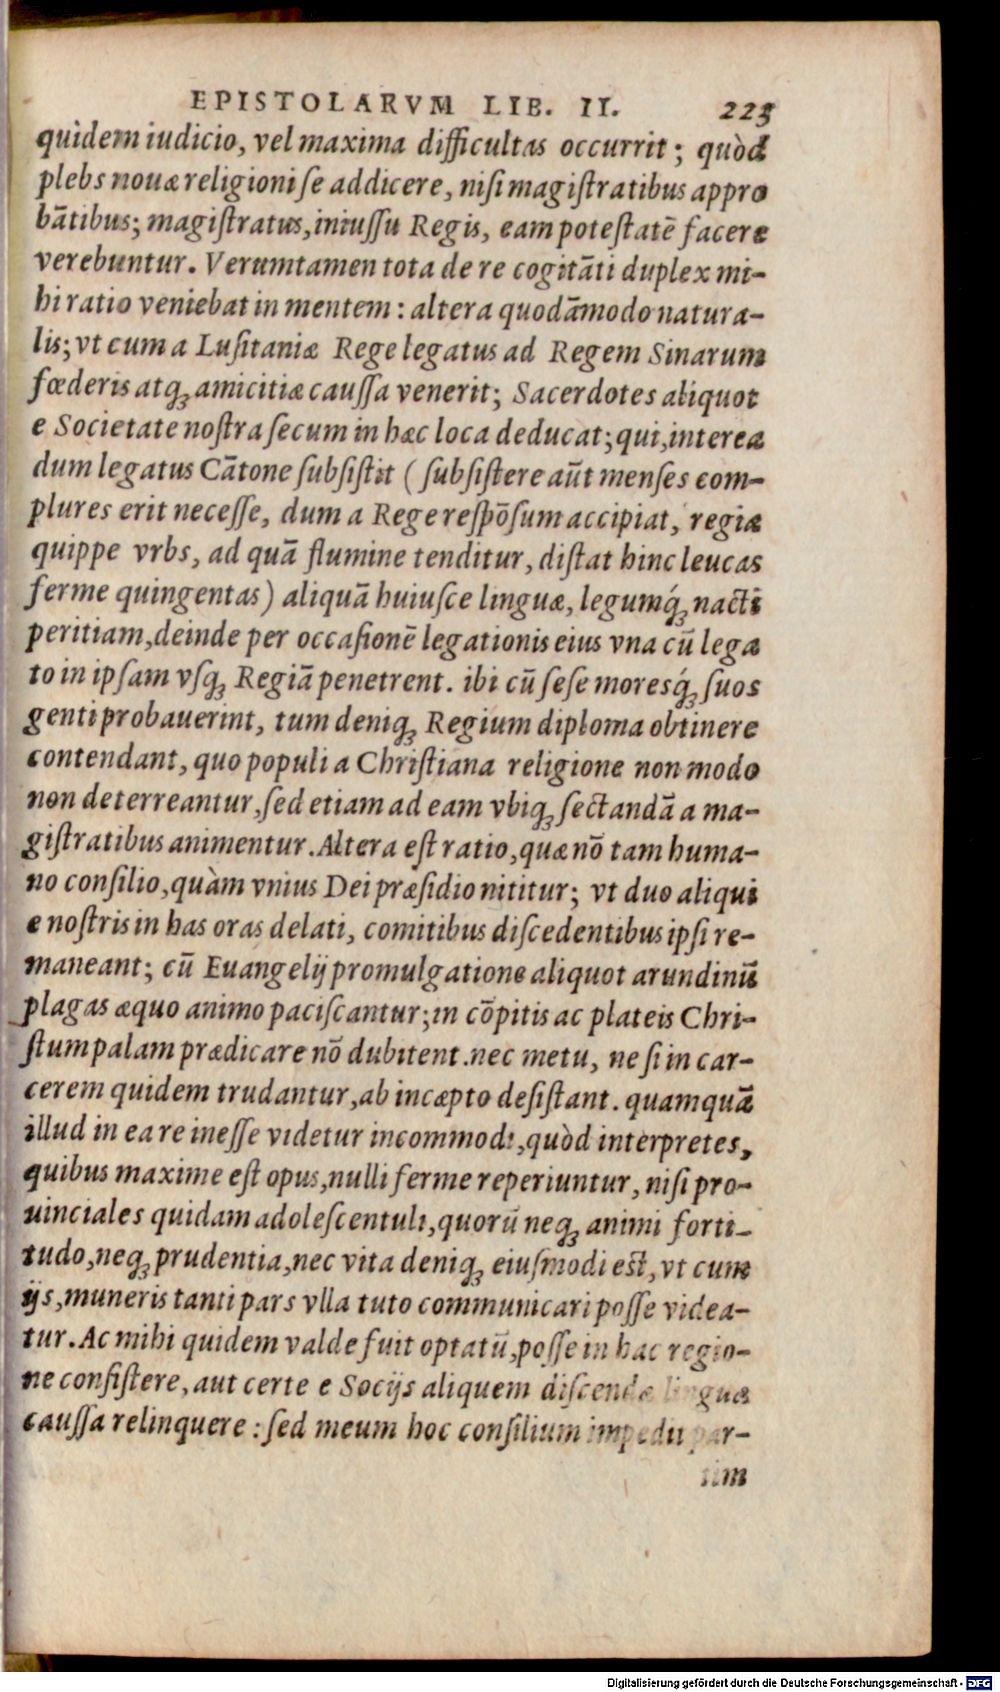 EPISTOLARVM LIB. II. 223
quidem iudicio, vel maxima difficultas occurrit; quòd
plebs nouæ religioni ſe addicere, niſi magiſtratibus appro
bātibus; magiſtratus, iniuſſu Regis, eam poteſtatē facere
verebuntur. Verumtamen tota de re cogitāti duplex mi-
hi ratio veniebat in mentem: altera quodāmodo natura-
lis; vt cum a Luſitaniæ Rege legatus ad Regem Sinarum
fœderis atq; amicitiæ cauſſa venerit; Sacerdotes aliquot
e Societate noſtra ſecum in hæc loca deducat; qui, interea
dum legatus Cātone ſubſiſtit (ſubſiſtere aūt menſes com-
plures erit neceſſe, dum a Rege reſpōſum accipiat, regiæ
quippe vrbs, ad quā flumine tenditur, diſtat hinc leucas
ferme quingentas) aliquā huiuſce linguæ, legumq́; nacti
peritiam, deinde per occaſionē legationis eius vna cū lega
to in ipſam vſq; Regiā penetrent. ibi cū ſeſe moresq́; ſuos
genti probauerint, tum deniq; Regium diploma obtinere
contendant, quo populi a Chriſtiana religione non modo
non deterreantur, ſed etiam ad eam vbiq; ſectandā a ma-
giſtratibus animentur. Altera eſt ratio, quæ nō tam huma-
no conſilio, quàm vnius Dei præſidio nititur; vt duo aliqui
e noſtris in has oras delati, comitibus diſcedentibus ipſi re-
maneant; cū Euangelij promulgatione aliquot arundinū
plagas æquo animo paciſcantur; in cōpitis ac plateis Chri-
ſtum palam prædicare nō dubitent. nec metu, ne ſi in car-
cerem quidem trudantur, ab incæpto deſiſtant. quamquā
illud in ea re ineſſe videtur incommodi, quòd interpretes,
quibus maxime eſt opus, nulli ferme reperiuntur, niſi pro-
uinciales quidam adoleſcentuli, quorū neq; animi forti-
tudo, neq; prudentia, nec vita deniq; eiuſmodi eſt, vt cum
ijs, muneris tanti pars vlla tuto communicari poſſe videa-
tur. Ac mihi quidem valde fuit optatū, poſſe in hac regio-
ne conſiſtere, aut certe e Socijs aliquem diſcendæ linguæ
cauſſa relinquere: ſed meum hoc conſilium impedii par-
tim
Digitalisierung gefördert durch die Deutsche Forschungsgemeinschaft - DFG